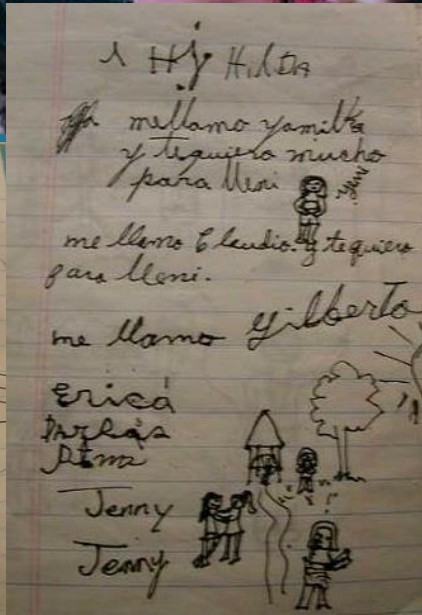 Hj HilDA
me llamo yamilka
y te quiero mucho
para lleni
me llamo Claudio. y te quiero
para lleni.
me llamo Gilberto
Erica
Jenny
Jenny